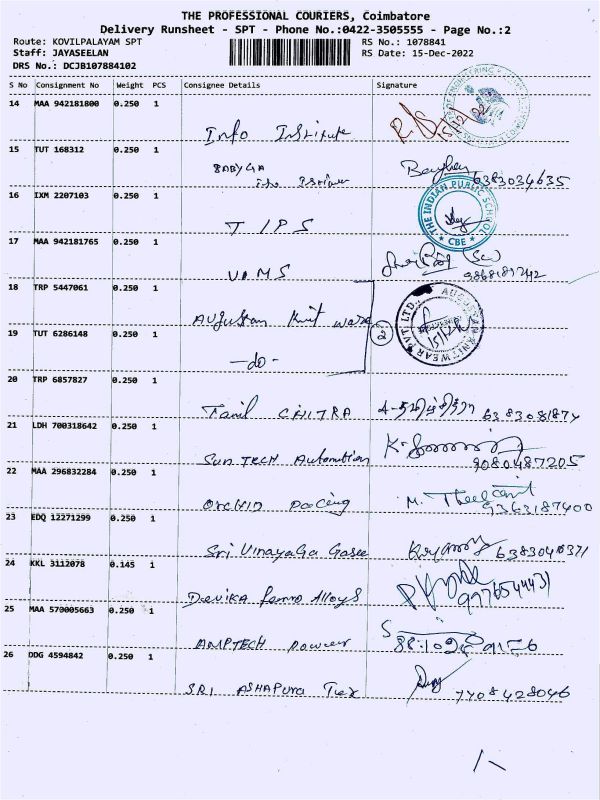 THE PROFESSIONAL COURIERS, Coimbatore
Delivery Runsheet - SPT - Phone No.:0422-3505555 - Page No.:2
Route: KOVILPALAYAM SPT
RS No.: 1078841
Staff: JAYASEELAN
RS Date: 15-Dec-2022
DRS No.: DCJB107884102
S No Consignment No Weight PCS Consignee Details Signature
14 MAA 942181800 0.250 1
Info Institute
15/12/22
15 TUT 168312 0.250 1
6383034635
16 IXM 2207103 0.250 1
THE INDIAN PUBLIC SCHOOL
CBE
T IPS
17 MAA 942181765 0.250 1
UIMS
18 TRP 5447061 0.250 1
Augustan Knit wear
19 TUT 6286148 0.250 1
-do-
20 TRP 6857827 0.250 1
Tamil CHITRA
21 LDH 700318642 0.250 1
SunTECH Automation
9080487205
22 MAA 296832284 0.250 1
ORCHID
9363187400
23 EDQ 12271299 0.250 1
Sri Vinayaga
24 KKL 3112078 0.145 1
Devika Ferro Alloys
9976544431
25 MAA 570005663 0.250 1
AMPTECH Power
26 DDG 4594842 0.250 1
SRI ASHAPURA Tex
7708428046